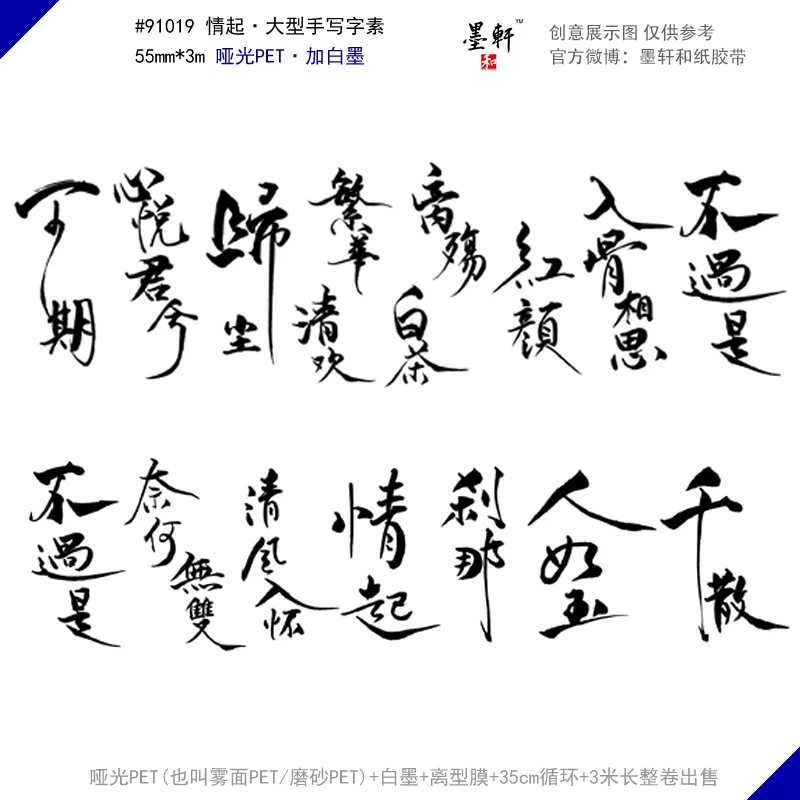 #91019 情起·大型手写字素
55mm*3m 哑光PET·加白墨
墨軒™
和
创意展示图 仅供参考
官方微博：墨轩和纸胶带
不期
心悦君兮
歸尘
繁華
清欢
离殇
白茶
紅顔
入骨相思
不過是
不過是
奈何
無雙
清風入怀
情起
刹那
人如玉
千散
哑光PET(也叫雾面PET/磨砂PET)+白墨+离型膜+35cm循环+3米长整卷出售